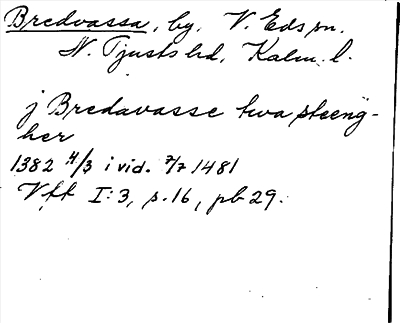 Bredvassa, by, V. Eds sn.
N. Tjusts hd, Kalm. l.
j Bredavasse twa steeng-
her
1382 4/3 i vid. 7/7 1481
Vff I:3, s. 16, pb 29.